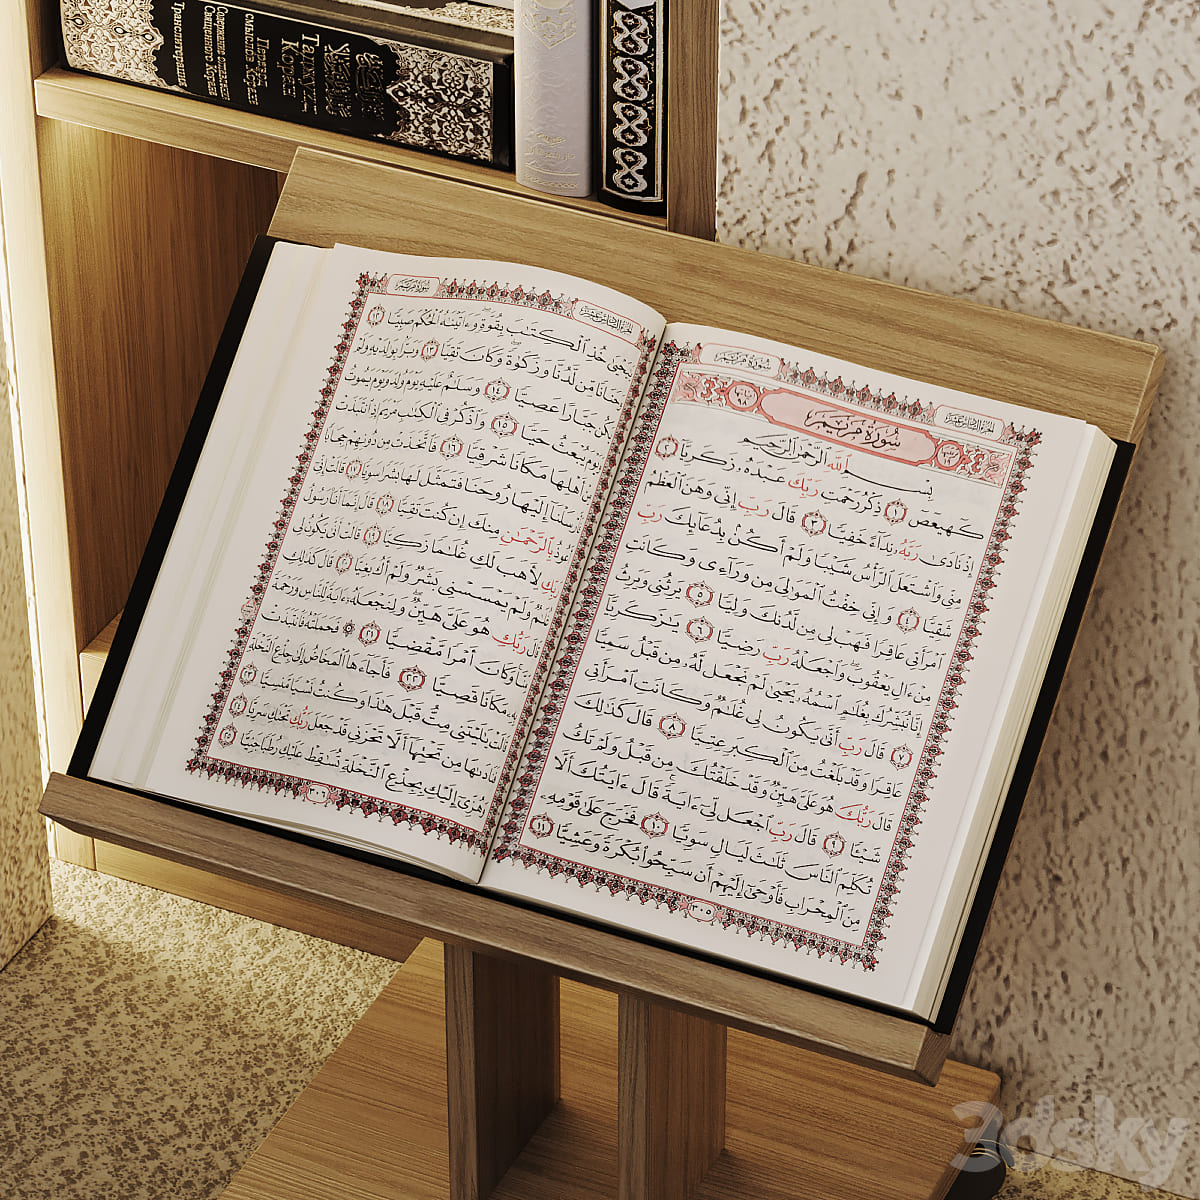 Таджул Корен
Перевод
смысла Корана
Содержание одиннадцати
Священного Корана
Транслитерация
سُورَةُ مَرْيَمَ
الجزء السادس عشر
سُورَةُ مَرْيَمَ
بِسْمِ اللَّهِ الرَّحْمَٰنِ الرَّحِيمِ
كٓهيعٓصٓ ١ ذِكْرُ رَحْمَتِ رَبِّكَ عَبْدَهُۥ زَكَرِيَّآ ٢
إِذْ نَادَىٰ رَبَّهُۥ نِدَآءً خَفِيًّا ٣ قَالَ رَبِّ إِنِّي وَهَنَ ٱلْعَظْمُ
مِنِّي وَٱشْتَعَلَ ٱلرَّأْسُ شَيْبًا وَلَمْ أَكُنۢ بِدُعَآئِكَ رَبِّ
شَقِيًّا ٤ وَإِنِّي خِفْتُ ٱلْمَوَٰلِيَ مِن وَرَآءِي وَكَانَتِ
ٱمْرَأَتِي عَاقِرًا فَهَبْ لِي مِن لَّدُنكَ وَلِيًّا ٥ يَرِثُنِي وَيَرِثُ
مِنْ ءَالِ يَعْقُوبَ ۖ وَٱجْعَلْهُ رَبِّ رَضِيًّا ٦ يَٰزَكَرِيَّآ
إِنَّا نُبَشِّرُكَ بِغُلَٰمٍ ٱسْمُهُۥ يَحْيَىٰ لَمْ نَجْعَل لَّهُۥ مِن قَبْلُ سَمِيًّا
٧ قَالَ رَبِّ أَنَّىٰ يَكُونُ لِي غُلَٰمٌ وَكَانَتِ ٱمْرَأَتِي
عَاقِرًا وَقَدْ بَلَغْتُ مِنَ ٱلْكِبَرِ عِتِيًّا ٨ قَالَ كَذَٰلِكَ
قَالَ رَبُّكَ هُوَ عَلَيَّ هَيِّنٌ وَقَدْ خَلَقْتُكَ مِن قَبْلُ وَلَمْ تَكُ
شَيْـًٔا ٩ قَالَ رَبِّ ٱجْعَل لِّيٓ ءَايَةً ۚ قَالَ ءَايَتُكَ أَلَّا
تُكَلِّمَ ٱلنَّاسَ ثَلَٰثَ لَيَالٍ سَوِيًّا ١٠ فَخَرَجَ عَلَىٰ قَوْمِهِۦ
مِنَ ٱلْمِحْرَابِ فَأَوْحَىٰٓ إِلَيْهِمْ أَن سَبِّحُوا۟ بُكْرَةً وَعَشِيًّا ١١
٣٠٥
الجزء السادس عشر
سُورَةُ مَرْيَمَ
يَٰيَحْيَىٰ خُذِ ٱلْكِتَٰبَ بِقُوَّةٍ ۖ وَءَاتَيْنَٰهُ ٱلْحُكْمَ صَبِيًّا ١٢
وَحَنَانًا مِّن لَّدُنَّا وَزَكَوٰةً ۖ وَكَانَ تَقِيًّا ١٣ وَبَرًّۢا بِوَٰلِدَيْهِ وَلَمْ
يَكُن جَبَّارًا عَصِيًّا ١٤ وَسَلَٰمٌ عَلَيْهِ يَوْمَ وُلِدَ وَيَوْمَ يَمُوتُ
وَيَوْمَ يُبْعَثُ حَيًّا ١٥ وَٱذْكُرْ فِي ٱلْكِتَٰبِ مَرْيَمَ إِذِ ٱنتَبَذَتْ
مِنْ أَهْلِهَا مَكَانًا شَرْقِيًّا ١٦ فَٱتَّخَذَتْ مِن دُونِهِمْ حِجَابًا
فَأَرْسَلْنَآ إِلَيْهَا رُوحَنَا فَتَمَثَّلَ لَهَا بَشَرًا سَوِيًّا ١٧ قَالَتْ إِنِّيٓ
أَعُوذُ بِٱلرَّحْمَٰنِ مِنكَ إِن كُنتَ تَقِيًّا ١٨ قَالَ إِنَّمَآ أَنَا۠ رَسُولُ
رَبِّكِ لِأَهَبَ لَكِ غُلَٰمًا زَكِيًّا ١٩ قَالَتْ أَنَّىٰ يَكُونُ لِي
غُلَٰمٌ وَلَمْ يَمْسَسْنِي بَشَرٌ وَلَمْ أَكُ بَغِيًّا ٢٠ قَالَ كَذَٰلِكِ
قَالَ رَبُّكِ هُوَ عَلَيَّ هَيِّنٌ ۖ وَلِنَجْعَلَهُۥٓ ءَايَةً لِّلنَّاسِ وَرَحْمَةً
مِّنَّا ۚ وَكَانَ أَمْرًا مَّقْضِيًّا ٢١ ۞ فَحَمَلَتْهُ فَٱنتَبَذَتْ
بِهِۦ مَكَانًا قَصِيًّا ٢٢ فَأَجَآءَهَا ٱلْمَخَاضُ إِلَىٰ جِذْعِ ٱلنَّخْلَةِ
قَالَتْ يَٰلَيْتَنِي مِتُّ قَبْلَ هَٰذَا وَكُنتُ نَسْيًا مَّنسِيًّا ٢٣
فَنَادَىٰهَا مِن تَحْتِهَآ أَلَّا تَحْزَنِي قَدْ جَعَلَ رَبُّكِ تَحْتَكِ سَرِيًّا ٢٤
وَهُزِّيٓ إِلَيْكِ بِجِذْعِ ٱلنَّخْلَةِ تُسَٰقِطْ عَلَيْكِ رُطَبًا جَنِيًّا ٢٥
٣٠٦
3dsky